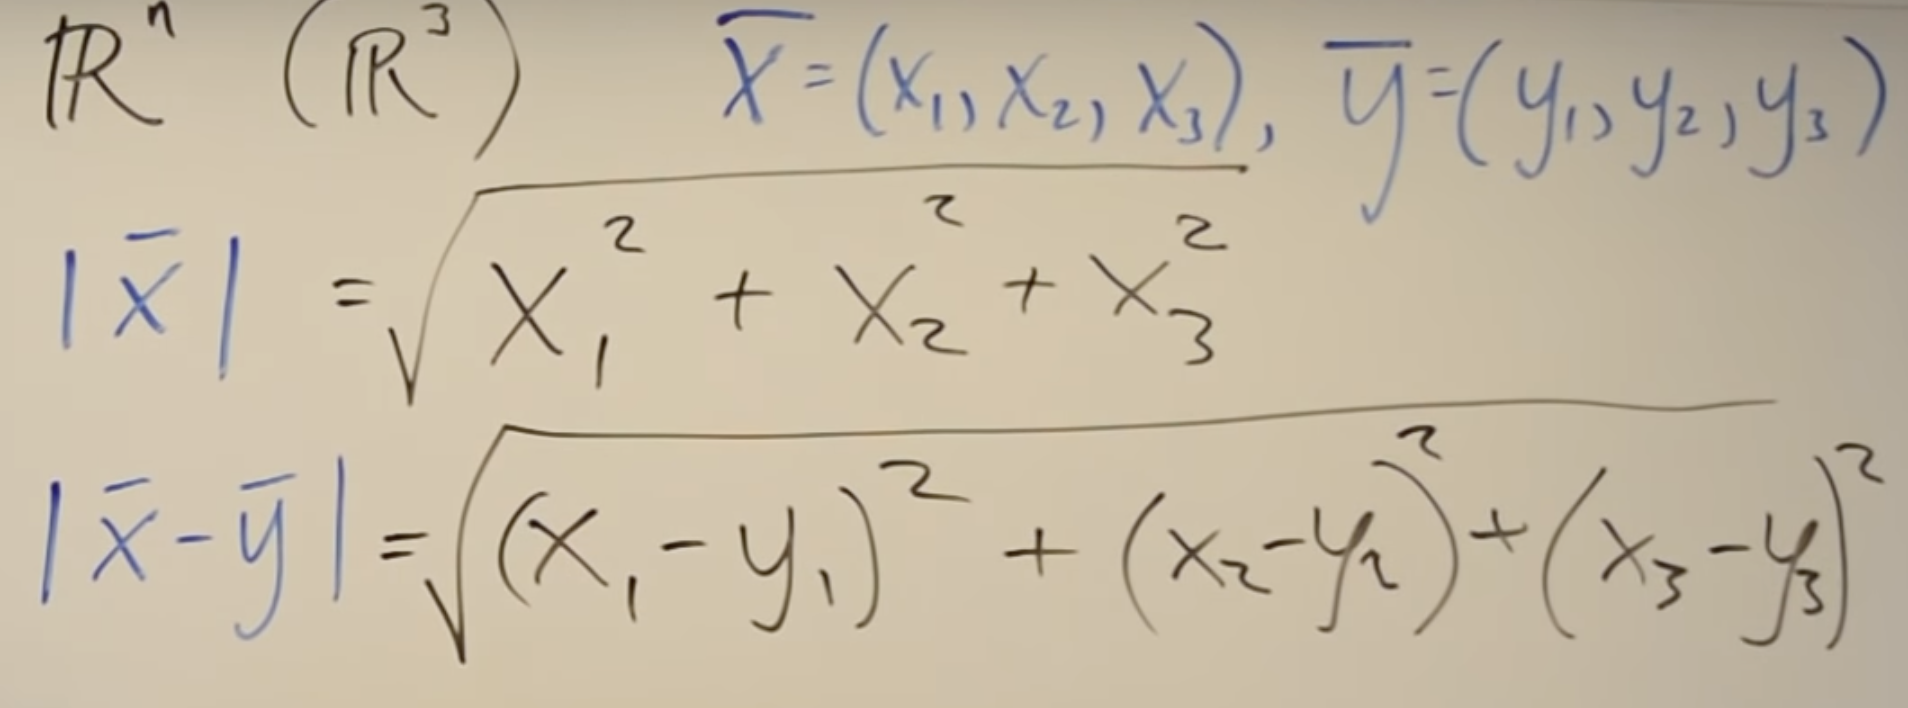 ℝⁿ (ℝ³) x̅ = (x₁, x₂, x₃), y̅ = (y₁, y₂, y₃)
|x̅| = √(x₁² + x₂² + x₃²)
|x̅ - y̅| = √((x₁ - y₁)² + (x₂ - y₂)² + (x₃ - y₃)²)